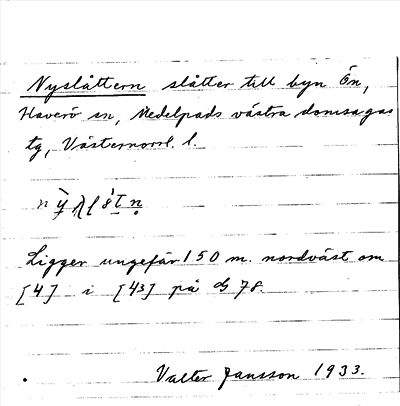 Nyslåttern slåtter till byn Ön,
Haverö sn, Medelpads västra domsagas
tg, Västernorrl. l.
Ligger ungefär 150 m. nordväst om
[4] i [43] på G 78.
Valter Jansson 1933.